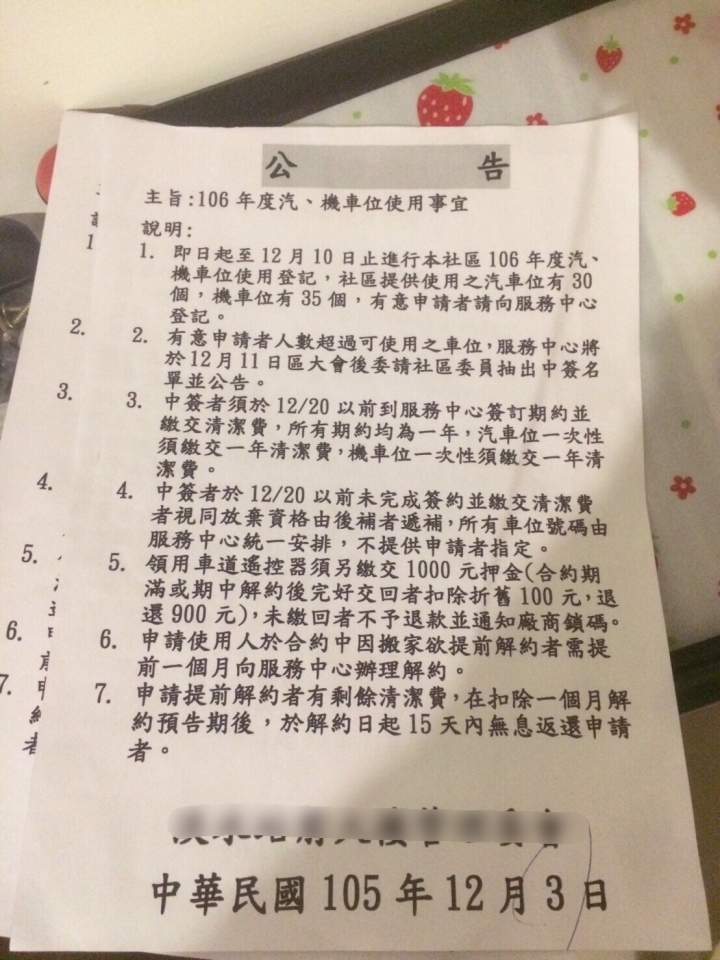 公 告
主旨:106 年度汽、機車位使用事宜
說明:
1. 即日起至 12 月 10 日止進行本社區 106 年度汽、
機車位使用登記,社區提供使用之汽車位有 30
個,機車位有 35 個,有意申請者請向服務中心
登記。
2. 有意申請者人數超過可使用之車位,服務中心將
於 12 月 11 日區大會後委請社區委員抽出中簽名
單並公告。
3. 中簽者須於 12/20 以前到服務中心簽訂期約並
繳交清潔費,所有期約均為一年,汽車位一次性
須繳交一年清潔費,機車位一次性須繳交一年清
潔費。
4. 中簽者於 12/20 以前未完成簽約並繳交清潔費
者視同放棄資格由後補者遞補,所有車位號碼由
服務中心統一安排,不提供申請者指定。
5. 領用車道遙控器須另繳交 1000 元押金(合約期
滿或期中解約後完好交回者扣除折舊 100 元,退
還 900 元),未繳回者不予退款並通知廠商鎖碼。
6. 申請使用人於合約中因搬家欲提前解約者需提
前一個月向服務中心辦理解約。
7. 申請提前解約者有剩餘清潔費,在扣除一個月解
約預告期後,於解約日起 15 天內無息返還申請
者。
中華民國 105 年 12 月 3 日
1
2.
3.
4.
5.
6.
7.